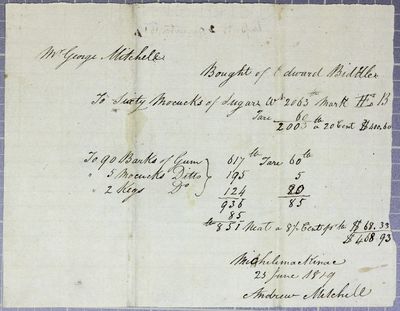 Mr George Mitchell
Bought of Edward Biddle
To Sixty Mococks of Sugar Wt 2063 lb Mark B
Tare 60
2003 lb a 20 Cent $400.60
To 90 Barks of Gum 617 lb Tare 60 lb
" 5 Mococks Ditto 195 5
" 2 Kegs Do 124 20
936 85
85
lb 851 Neat a 8 Cent pr lb $ 68.33
$ 468 93
Michilimackinac
23 June 1819
Andrew Mitchell